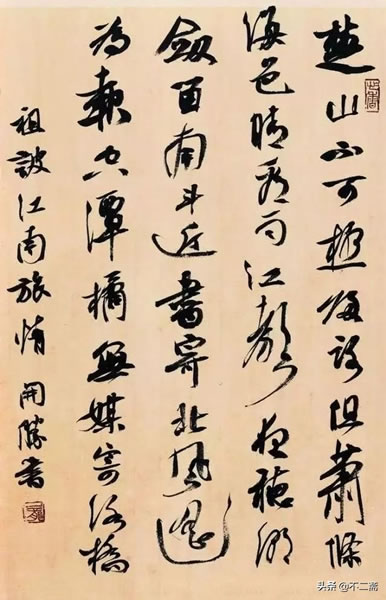 楚山不可極歸路但蕭條
海色晴看雨江聲夜聽潮
劍留南斗近書寄北風遙
為報空潭橘無媒寄洛橋
祖詠江南旅情 開勝書
头条 @不二斋